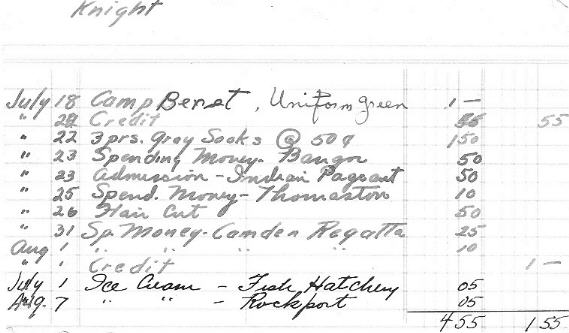 Knight
July 18 Camp Benet, Uniform green 1 —
" 21 Credit 55
" 22 3 prs. Grey Socks @ 50¢ 1 50
" 23 Spending Money - Bangor 50
" 23 Admission - Indian Pageant 50
" 25 Spend. Money - Thomaston 10
" 26 Hair Cut 50
" 31 Sp. Money - Camden Regatta 25
Aug 1 " " " " 10
" 1 Credit 1 —
July 1 Ice Cream - Fish Hatchery 05
Aug. 7 " " - Rockport 05
4 55 1 55